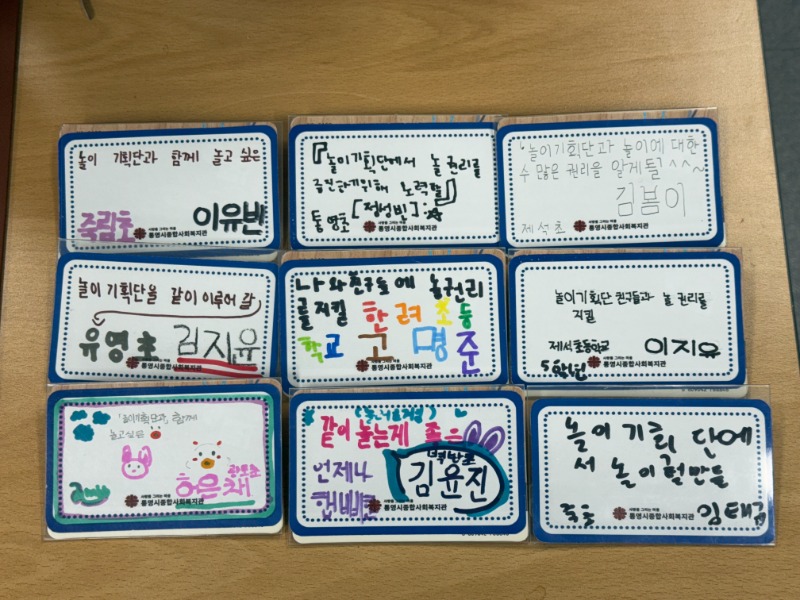 놀이 기획단과 함께 놀고 싶은
죽림초 이유빈
사랑을 그리는 마을
통영시종합사회복지관
『놀이기획단에서 놀 권리를
증진하기위해 노력할』
통영초 [정성빈]
사랑을 그리는 마을
통영시종합사회복지관
「놀이기획단과 놀이에 대한
수 많은 권리을 알게될」^^~
김봄이
제석초
사랑을 그리는 마을
통영시종합사회복지관
놀이 기획단을 같이 이루어 감
유영초 김지유
사랑을 그리는 마을
통영시종합사회복지관
나와 친구들에 놀권리
를 지킬 한려초등
학교 고명준
사랑을 그리는 마을
통영시종합사회복지관
놀이기획단 친구들과 놀 권리를
지킬
제석초등학교 이지유
5학년
사랑을 그리는 마을
통영시종합사회복지관
「놀이기획단과」 함께
놀고싶은
하은채
사랑을 그리는 마을
통영시종합사회복지관
같이 노는게 좋은
언제나
김윤진
사랑을 그리는 마을
통영시종합사회복지관
놀이기획 단에
서 놀이 헐만들
사랑을 그리는 마을
통영시종합사회복지관